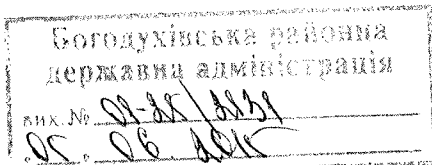 Богодухівська районна
державна адміністрація
вих.№ 02-25/
" 05 " 06 2015